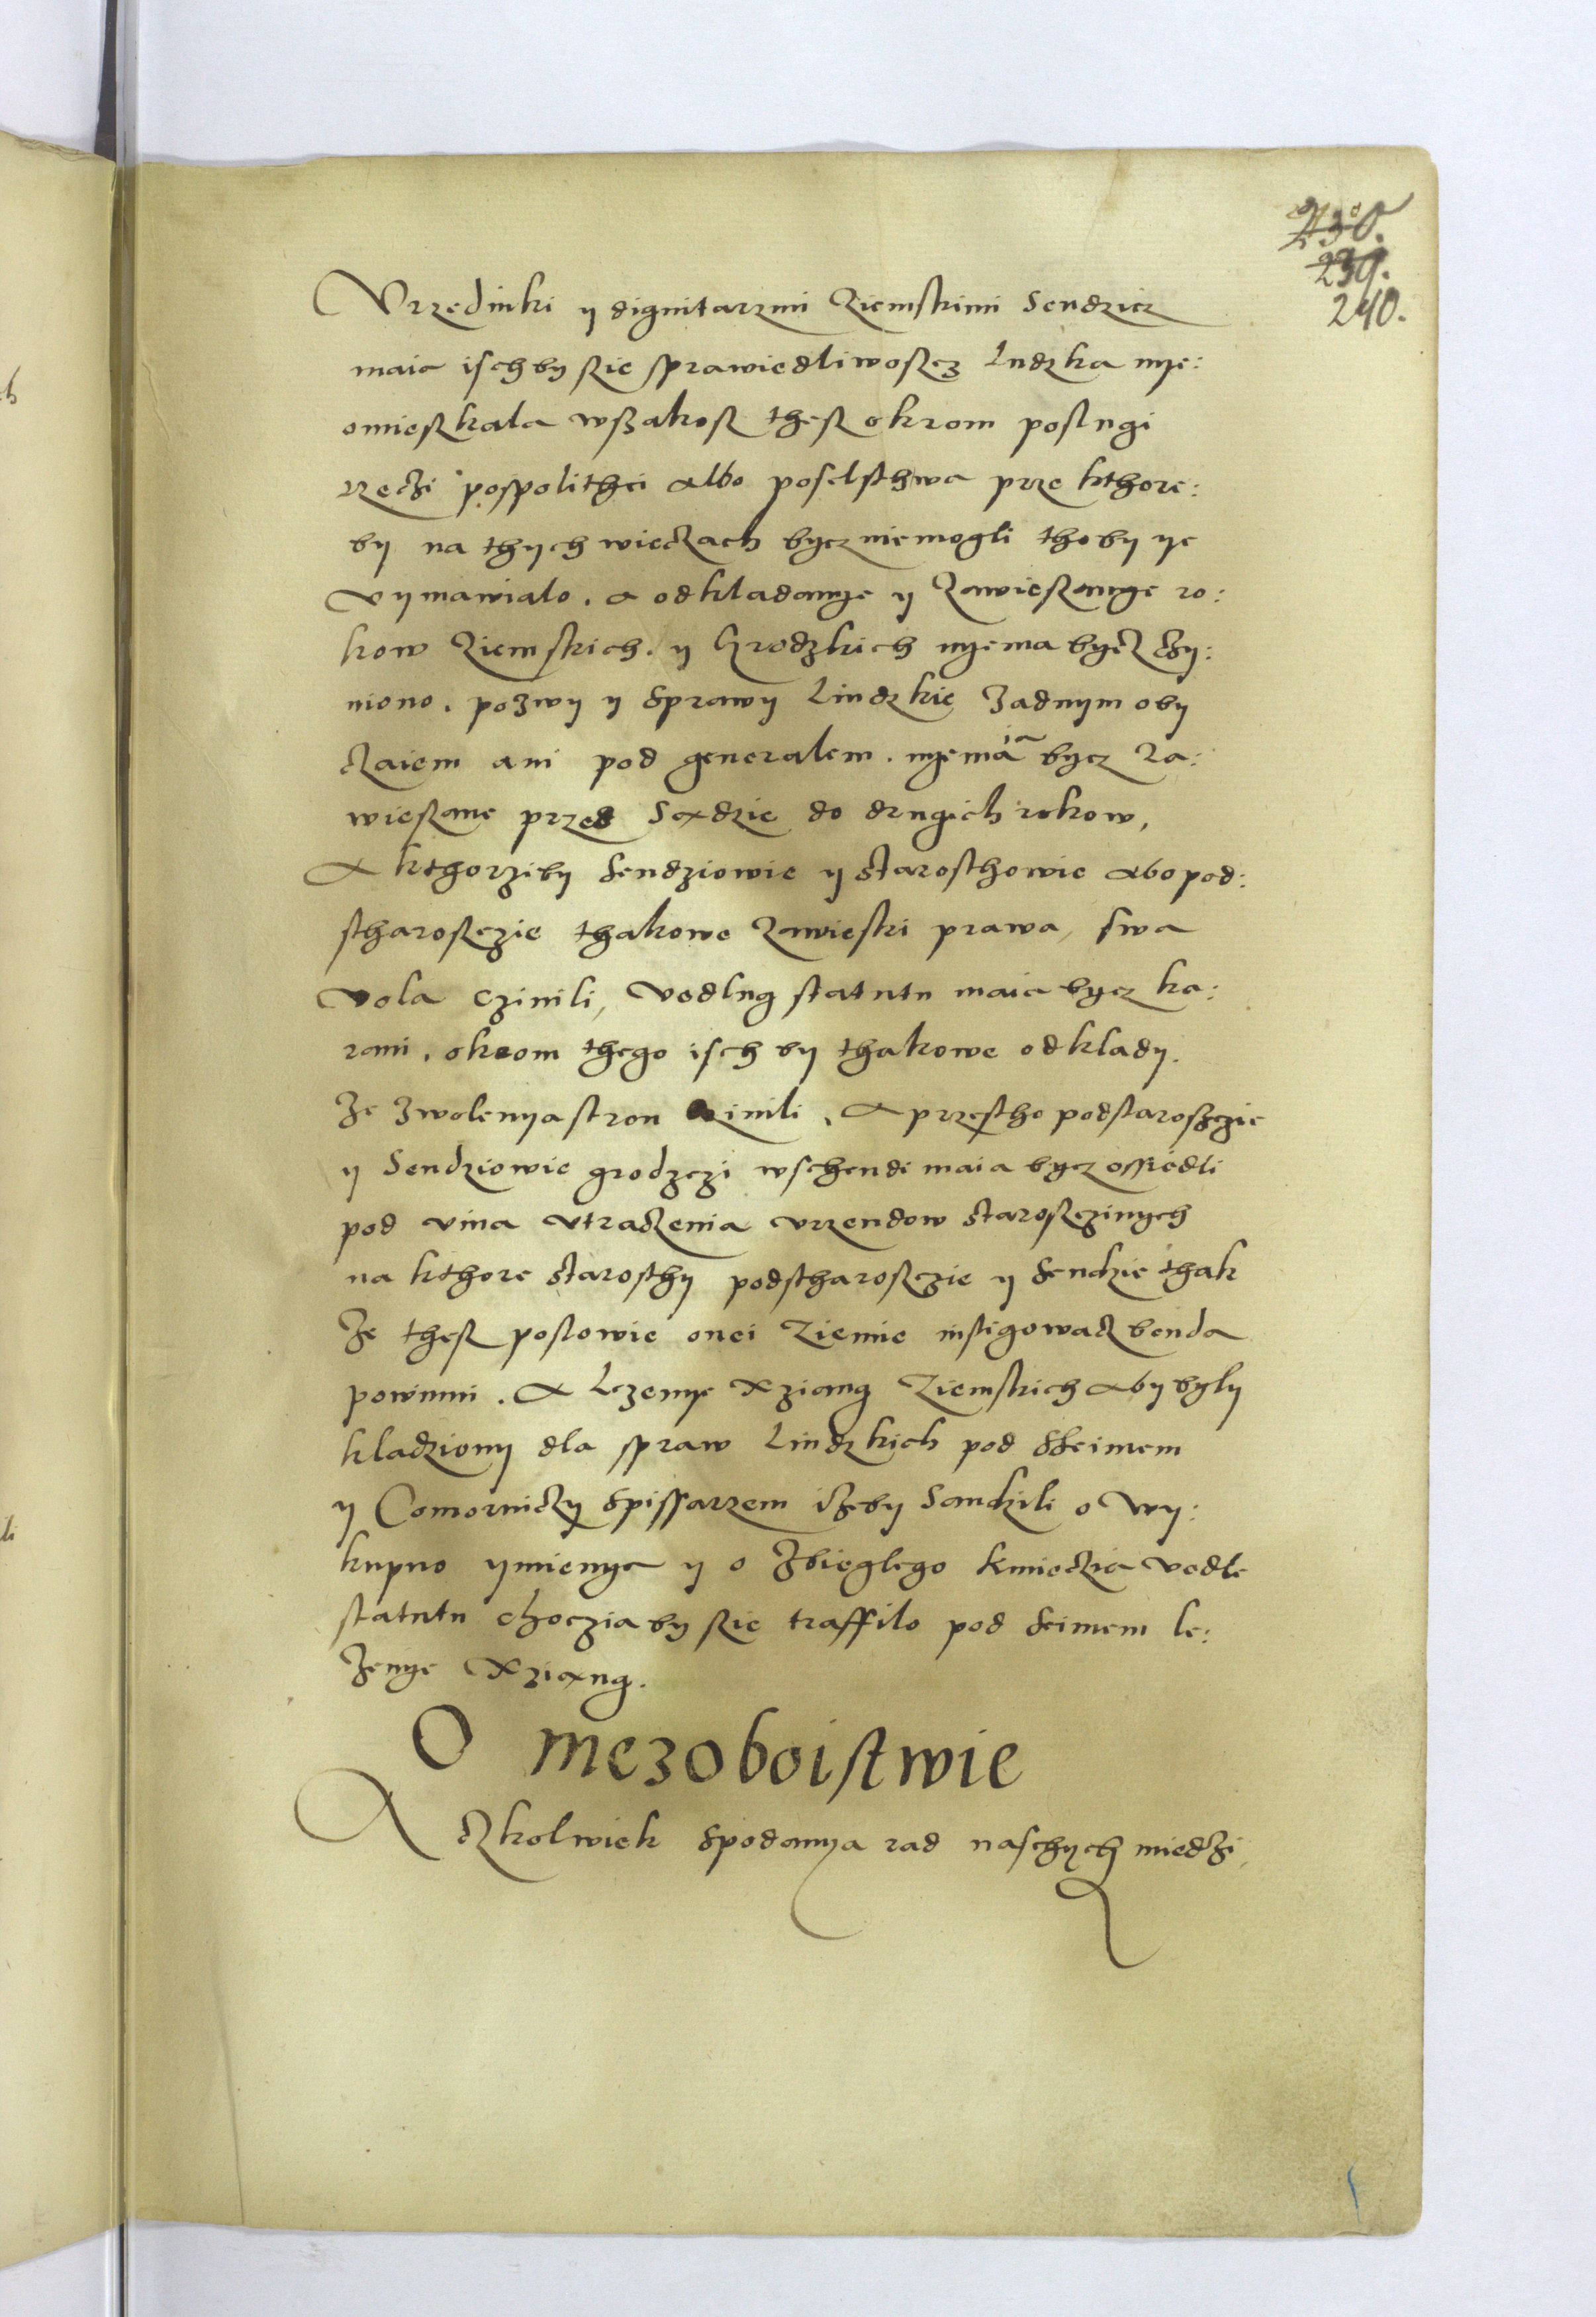 230.
239.
240.
Vrzedniki y dignitarzmi Ziemskimi Sendzicz
maia ischby sie sprawiedliwoscz ludzka nye:
omieszkala wszakosz thesz okrom poslugi
rzeczi pospolithei albo poselsthwa prze kthore:
by na thych wieczach bycz niemogli thoby ye
vymawialo. a odkladanye y zawieszanye ro:
kow Ziemskich. y Grodzkich nyema bycz czy:
niono. pozwy y Sprawy Liudzkie zadnym oby
czaiem ani pod generalem. nyemaia bycz za:
wieszane przed Sądzie do drugich rokow,
A kthorziby Sendziowie y starosthowie abo pod:
stharosczie thakowe zawieski prawa, swa
vola czinili, vedlug statutu maia bycz ka:
rani. okrom thego isch by thakowe odklady.
Ze zwolenya stron czinili, A przestho podstarosczie
y Sendziowie grodzczi wschendi maia bycz ossiedli
pod vina vtraczenia vrzendow starosczinych
na kthore starosthy podstharosczie y Sendzie thak
Ze thesz poslowie onei Ziemie instigowacz benda
powinni. A Lezenye Xziąng Ziemskich aby byly
kladziony dla spraw Liudzkich pod Sseimem
y Comorniczy Spissarzem iszby Sandzili o wy:
kupno ymienya y o Zbieglego kmieczia vedle
statutu choczia by sie traffilo pod Seimem le:
Zenye Xziąng.
O mezoboistwie
Aczkolwiek Spodanya rad naschych miedzi,